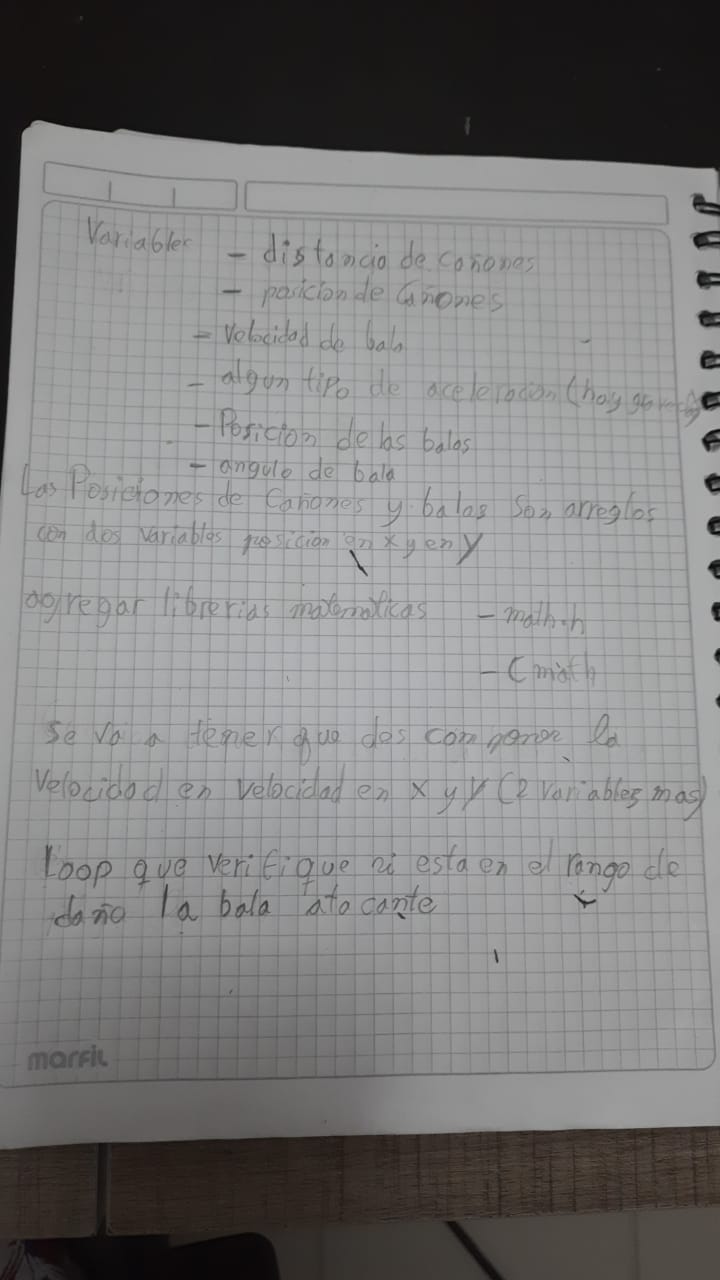 Variables - distancia de cañones
- posicion de Cañones
- Velocidad de bala
- algun tipo de aceleracion (hay
- Posicion de las balas
- angulo de bala
Las Posiciones de Cañones y balas Son arreglos
con dos variables posicion en x y en y
agregar librerias matematicas - math.h
- Cmath
Se va a tener que descomponer la
Velocidad en velocidad en x y y (2 variables mas)
Loop que verifique si esta en el rango de
daño la bala atacante
marfil